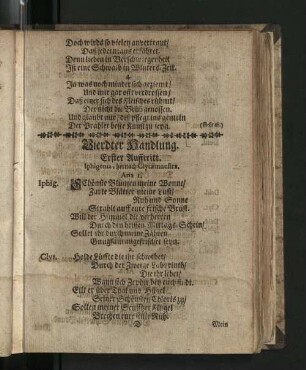 Doch wirds so vielen anvertraut/
Daß jederman erfähret.
Denn lieben in Verschwiegenheit
Ist eine Schwalb in Winters-Zeit.
4.
Ja was noch minder sich geziemt/
Und mir gar oft verdrossen/
Daß einer sich des Fleisches rühmt/
Der nicht die Brüh genossen.
Und glaubt mir/ das pflegt ins gemein
Der Prahler beste Kunst zu seyn.
Vierdter Handlung.
Erster Aufftritt.
Iphigenia, hernach Clytæmnestra.
Aria 1.
Iphig. Schönste Blumen meine Wonne/
Zarte Blätter meine Lust/
Ruh und Sonne
Strahlt auff eure frische Brust.
Will der Himmel die verheeren
Durch den heissen Mittags-Schein/
Sollet ihr durch meine Zähren
Gnugsam angefrischet seyn.
2.
Clyt. Holde Lüffte die ihr schwebet/
Durch der Zweige Labyrinth/
Die ihr lebet/
Wann sich Zephir bey euch findt.
Eilt er über Thal und Hügel
Seiner Schönsten Chloris zu/
Sollen meiner Seuffzer Flügel
Brechen eure süsse Ruh.
D
Mein